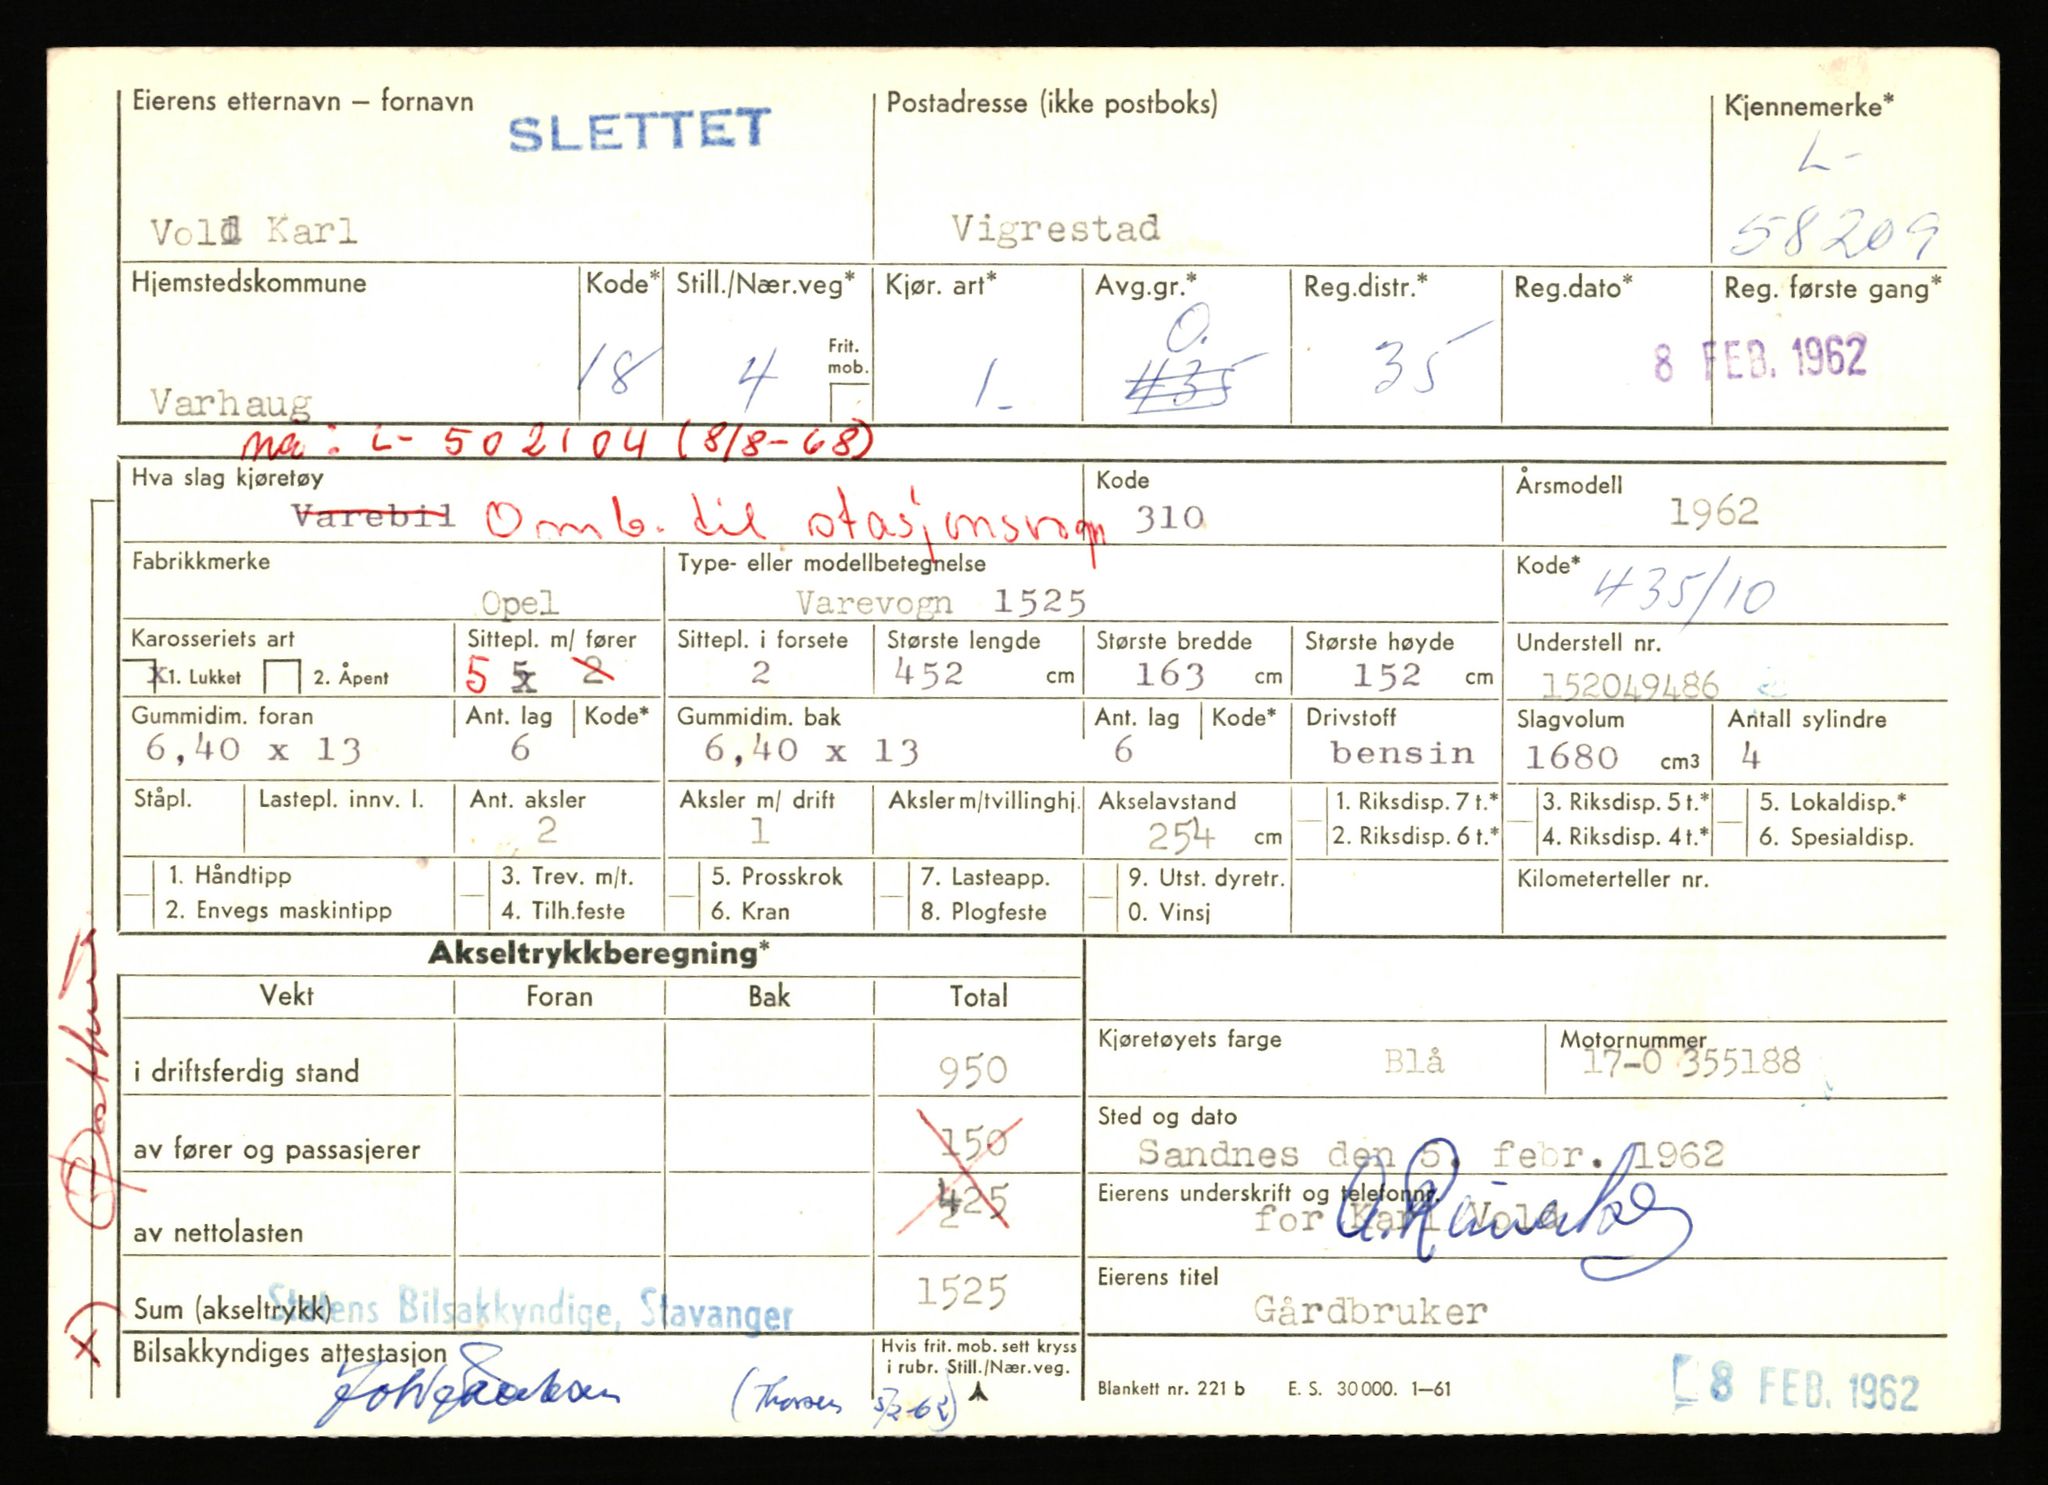 Eierens etternavn – fornavn
SLETTET
Postadresse (ikke postboks)
Kjennemerke*
L-
58209
Vold Karl
Vigrestad
Hjemstedskommune
Kode*
Still./Nær.veg*
Kjør. art*
Avg.gr.*
Reg.distr.*
Reg.dato*
Reg. første gang*
Varhaug
18
4
Frit. mob.
1-
0.
435
35
8 FEB. 1962
nå: L-502104 (8/8-68)
Hva slag kjøretøy
Kode
Årsmodell
Varebil Omb. til stasjonsvogn
310
1962
Fabrikkmerke
Type- eller modellbetegnelse
Kode*
Opel
Varevogn 1525
435/10
Karosseriets art
Sittepl. m/ fører
Sittepl. i forsete
Største lengde
Største bredde
Største høyde
Understell nr.
x 1. Lukket
2. Åpent
5 5 2
2
452 cm
163 cm
152 cm
152049486
Gummidim. foran
Ant. lag
Kode*
Gummidim. bak
Ant. lag
Kode*
Drivstoff
Slagvolum
Antall sylindre
6,40 x 13
6
6,40 x 13
6
bensin
1680 cm3
4
Ståpl.
Lastepl. innv. l.
Ant. aksler
Aksler m/ drift
Aksler m/tvillinghj.
Akselavstand
2
1
254 cm
1. Riksdisp. 7 t.*
2. Riksdisp. 6 t.*
3. Riksdisp. 5 t.*
4. Riksdisp. 4 t.*
5. Lokaldisp.*
6. Spesialdisp.
1. Håndtipp
2. Envegs maskintipp
3. Trev. m/t.
4. Tilh.feste
5. Prosskrok
6. Kran
7. Lasteapp.
8. Plogfeste
9. Utst. dyretr.
0. Vinsj
Kilometerteller nr.
Akseltrykkberegning*
Vekt
Foran
Bak
Total
i driftsferdig stand
950
av fører og passasjerer
150
av nettolasten
425
Sum (akseltrykk)
1525
Statens Bilsakkyndige, Stavanger
Bilsakkyndiges attestasjon
(Thorsen 5/2-62)
Hvis frit. mob. sett kryss
i rubr. Still./Nær.veg.
Kjøretøyets farge
Blå
Motornummer
17-0 355188
Sted og dato
Sandnes den 5. febr. 1962
Eierens underskrift og telefonnr.
for Karl Vold
Eierens titel
Gårdbruker
Blankett nr. 221 b
E. S. 30000. 1–61
8 FEB. 1962
x)